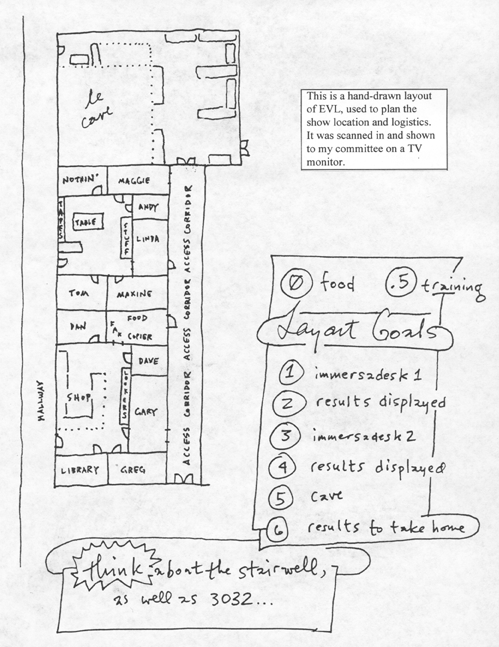 le
cave
This is a hand-drawn layout
of EVL, used to plan the
show location and logistics.
It was scanned in and shown
to my committee on a TV
monitor.
NOTHIN'
MAGGIE
TAPES
TABLE
STUFF
ANDY
LINDA
TOM
MAXINE
DAN
FAX
FOOD
COPIER
SHOP
LOCKERS
DAVE
GARY
LIBRARY
GREG
HALLWAY
ACCESS CORRIDOR ACCESS CORRIDOR ACCESS CORRIDOR
0 food .5 training
Layout Goals
1 immersadesk 1
2 results displayed
3 immersadesk 2
4 results displayed
5 cave
6 results to take home
think about the stairwell,
as well as 3032...